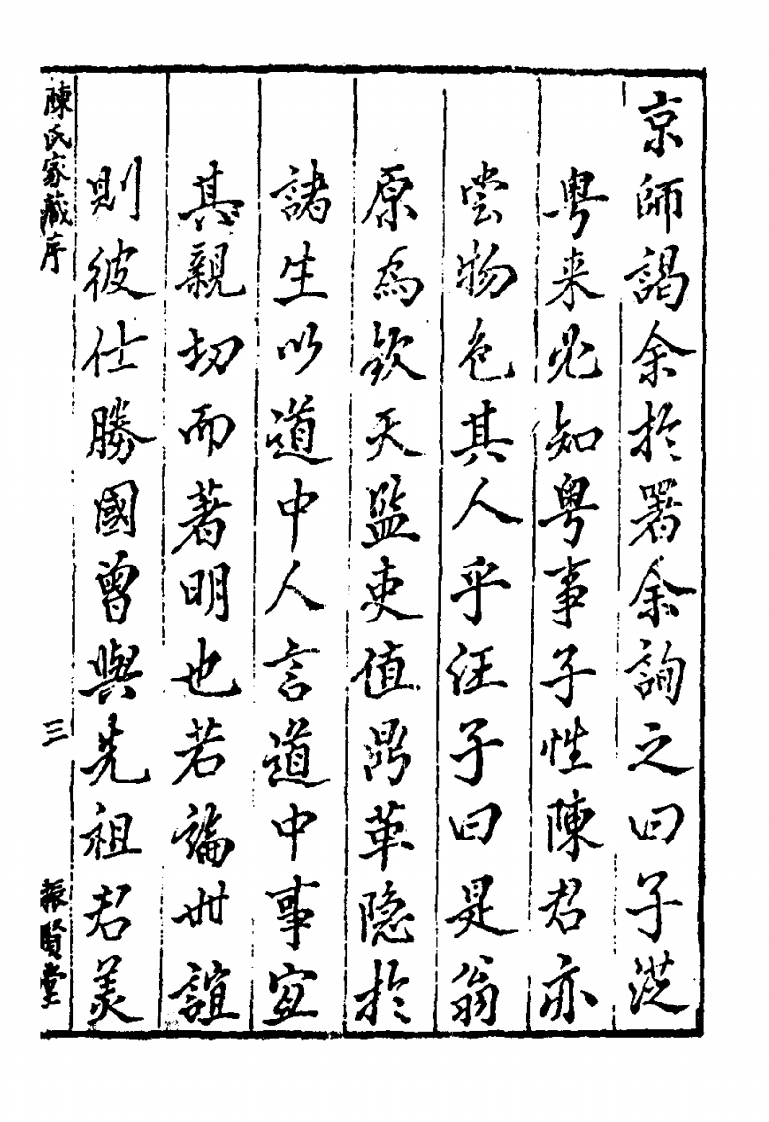 京師謁余於署余詢之曰子從
粤来必知粤事子性陳君亦
尝物色其人乎汪子曰是翁
原為欽天監吏值鼎革隐於
諸生以道中人言道中事宜
其親切而著明也若論世誼
則彼仕勝國曾與先祖君美
陳氏家藏序
三
振賢堂